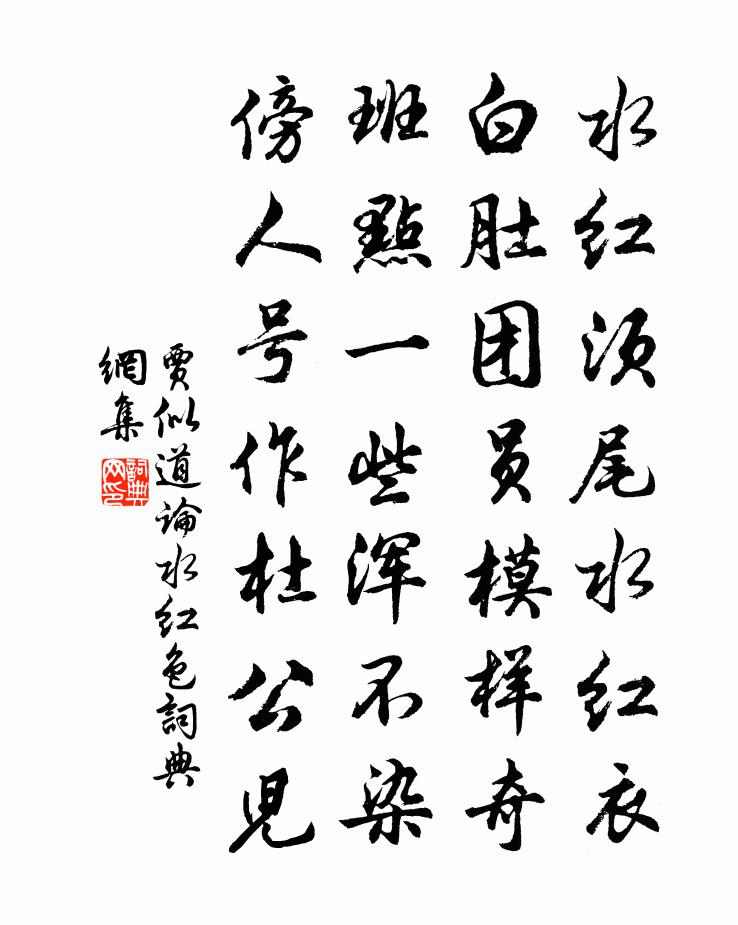 水红须尾水红衣
白肚团员模样奇
班點一些浑不染
傍人号作杜公児
賈似道論水红色詞典
網集
詞典網印